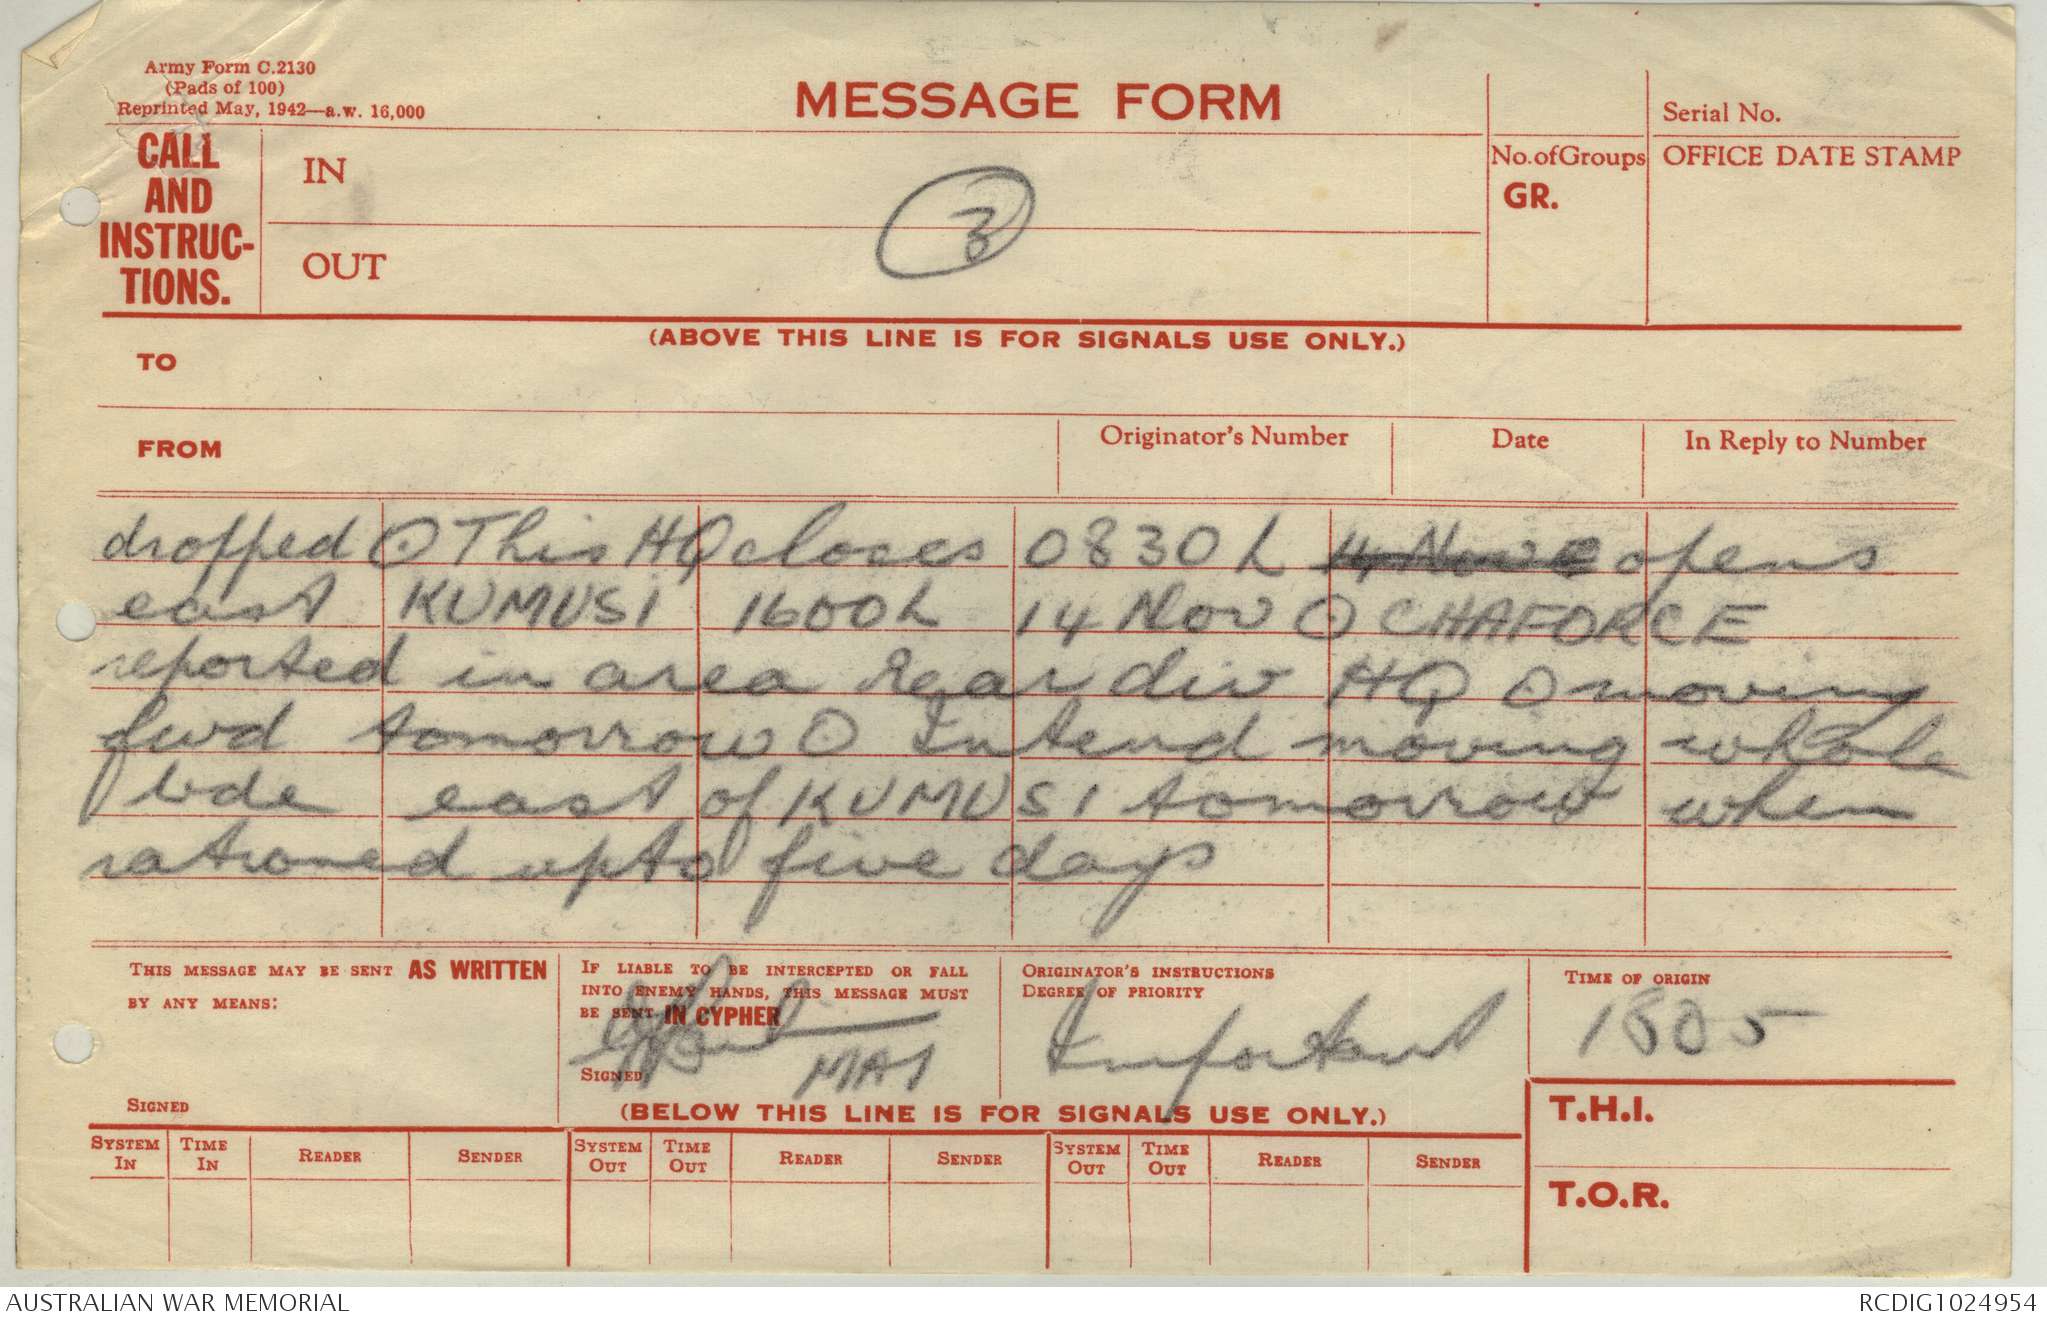 Army Form C.2130
(Pads of 100)
Reprinted May, 1942—a.w. 16,000
MESSAGE FORM
Serial No.
CALL
AND
INSTRUC-
TIONS.
IN
OUT
3
No. of Groups
GR.
OFFICE DATE STAMP
(ABOVE THIS LINE IS FOR SIGNALS USE ONLY.)
TO
FROM
Originator's Number
Date
In Reply to Number
dropped ⊙ This HQ closes 0830 L 14 Nov opens
east KUMUSI 1600L 14 Nov ⊙ CHAFORCE
reported in area Rear div HQ ⊙ moving
fwd tomorrow ⊙ Intend moving whole
bde east of KUMUSI tomorrow when
rationed up to five days
THIS MESSAGE MAY BE SENT AS WRITTEN
BY ANY MEANS:
SIGNED
IF LIABLE TO BE INTERCEPTED OR FALL
INTO ENEMY HANDS, THIS MESSAGE MUST
BE SENT IN CYPHER
SIGNED
MAJ
ORIGINATOR'S INSTRUCTIONS
DEGREE OF PRIORITY
Important
TIME OF ORIGIN
1805
(BELOW THIS LINE IS FOR SIGNALS USE ONLY.)
T.H.I.
T.O.R.
SYSTEM IN
TIME IN
READER
SENDER
SYSTEM OUT
TIME OUT
READER
SENDER
SYSTEM OUT
TIME OUT
READER
SENDER
AUSTRALIAN WAR MEMORIAL
RCDIG1024954